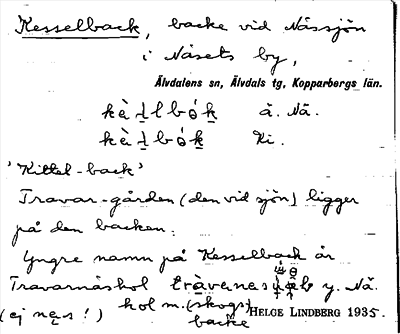 Kesselback, backe vid Nässjön
i Näsets by,
Älvdalens sn, Älvdals tg, Kopparbergs län.
kèḻlbók̠ å. Nä.
kèḻbók̠ Ki.
'Kittel-back'
Travar-gården (den vid sjön) ligger
på den backen.
Yngre namn på Kesselback är
Travarnäskol y. Nä.
(ej næs!) kol m. (skogs)
backe
HELGE LINDBERG 1935.